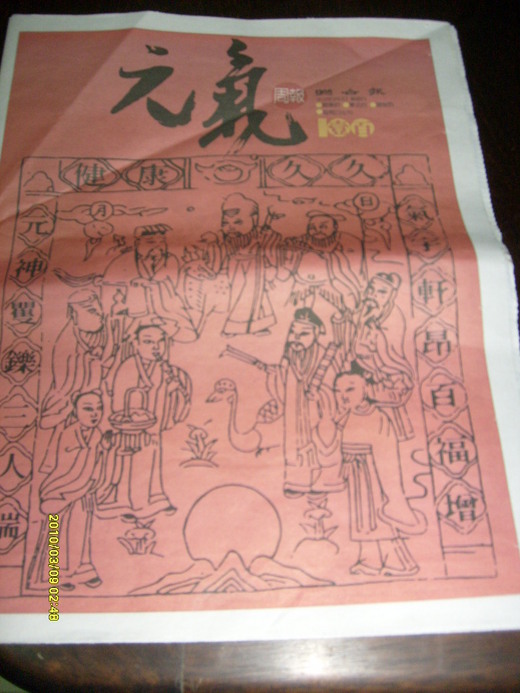 元氣
周報
聯合報
健康久久
月
日
氣宇軒昂百福增
元神矍鑠三人瑞
2010/03/09 02:48